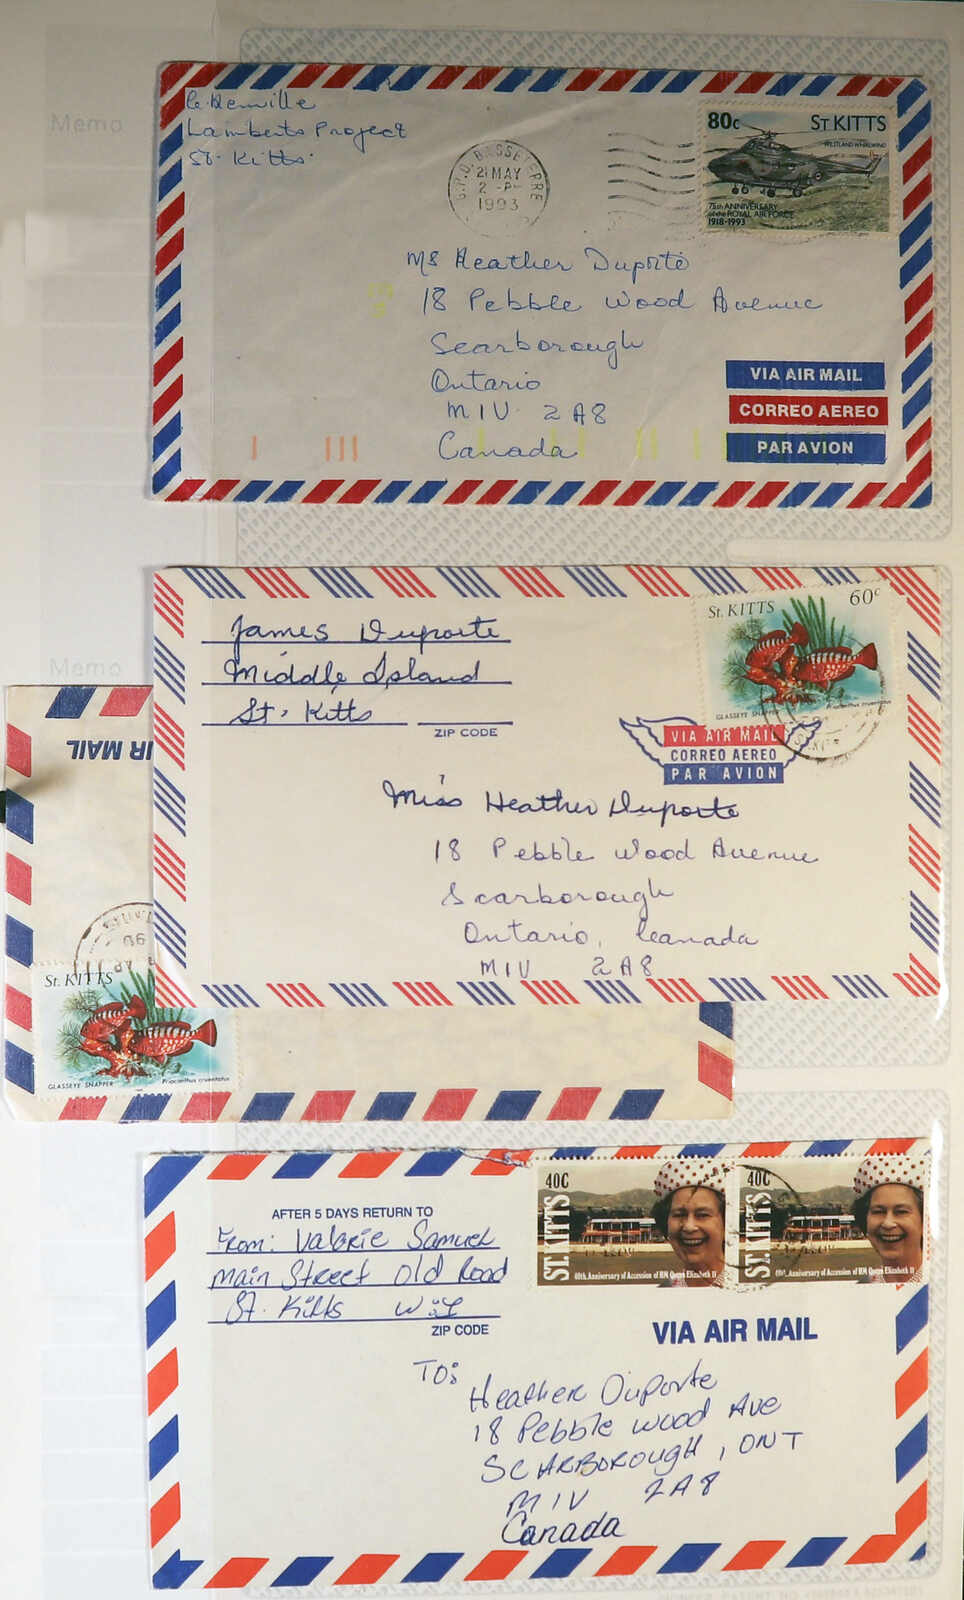 Memo
Lamberts Project
St. Kitts.
G.P.O. BASSETERRE
21 MAY
2 -P
1993
80c
ST KITTS
WESTLAND WHIRLWIND
75th ANNIVERSARY
of the ROYAL AIR FORCE
1918-1993
Ms Heather Duporte
18 Pebble Wood Avenue
Scarborough
Ontario
M1V 2A8
Canada
VIA AIR MAIL
CORREO AEREO
PAR AVION
Memo
James Duporte
Middle Island
St. Kitts
ZIP CODE
St. KITTS
60c
GLASSEYE SNAPPER
Priacanthus cruentatus
VIA AIR MAIL
CORREO AEREO
PAR AVION
Miss Heather Duporte
18 Pebble Wood Avenue
Scarborough
Ontario, Canada
M1V 2A8
AIR MAIL
St. KITTS
GLASSEYE SNAPPER
Priacanthus cruentatus
AFTER 5 DAYS RETURN TO
From: Valerie Samuel
Main Street Old Road
St. Kitts W.I
ZIP CODE
40C
ST. KITTS
40th Anniversary of Accession of HM Queen Elizabeth II
40C
ST. KITTS
40th Anniversary of Accession of HM Queen Elizabeth II
VIA AIR MAIL
TO:
Heather Duporte
18 Pebble wood Ave
SCARBOROUGH, ONT
M1V 2A8
Canada